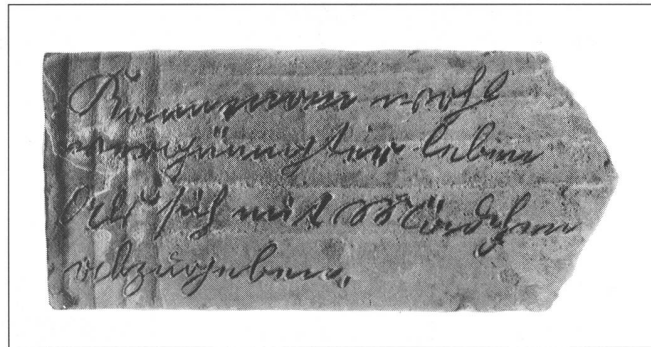 Kann man wohl
vergnügter leben
Als sich mit Mädchen
abzugeben.